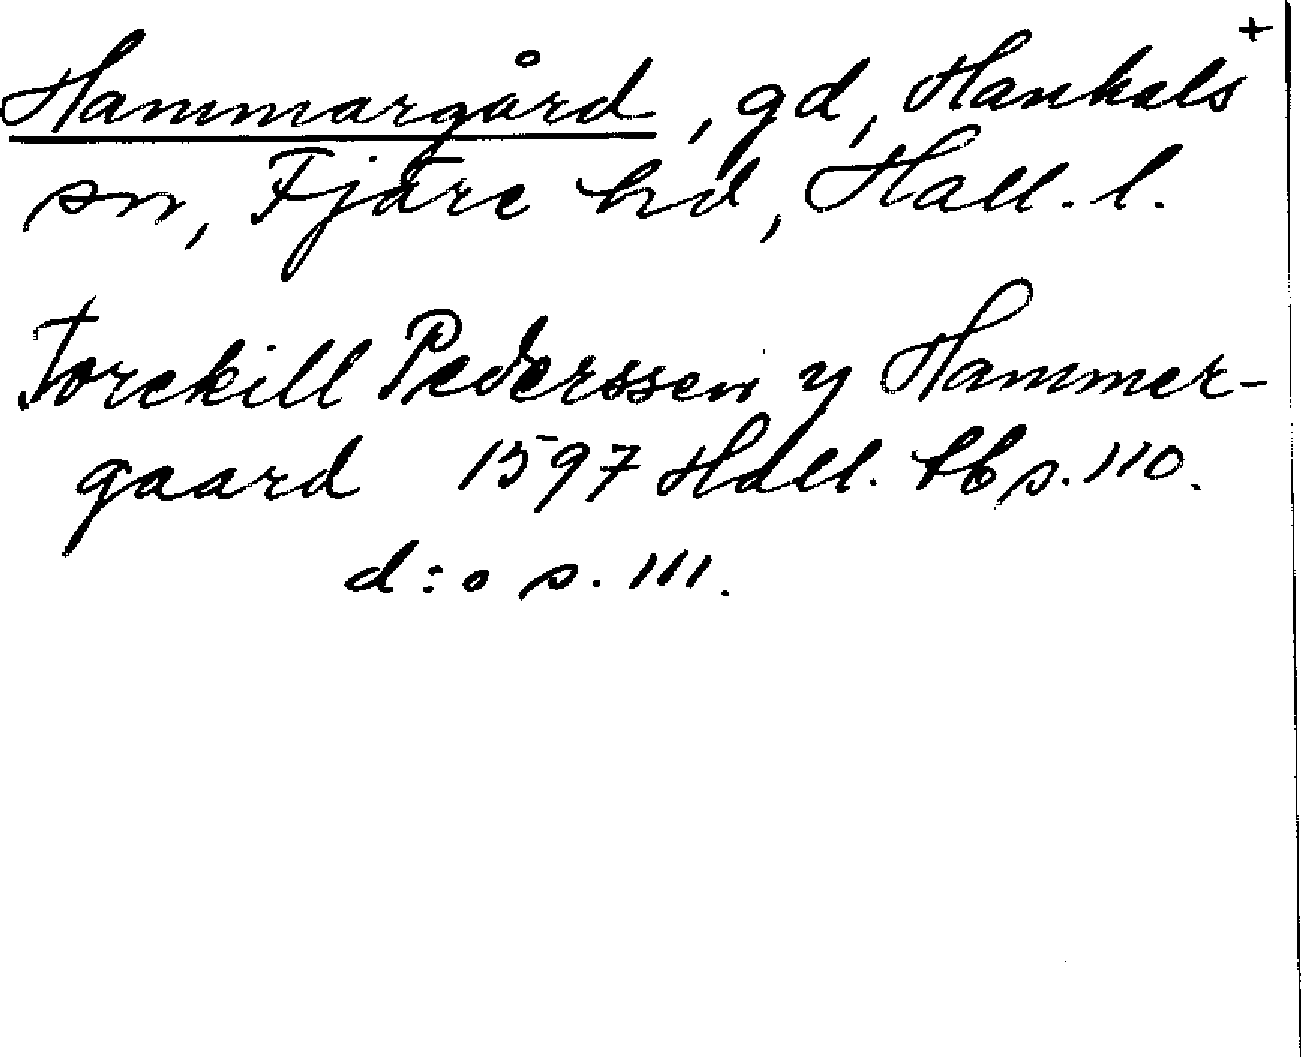 Hammargård, gd, Hanhals +
sn, Fjäre hd, Hall. l.
Torekill Pederssen y Hammer-
gaard 1597 Hall. tb s. 110.
d:o s. 111.